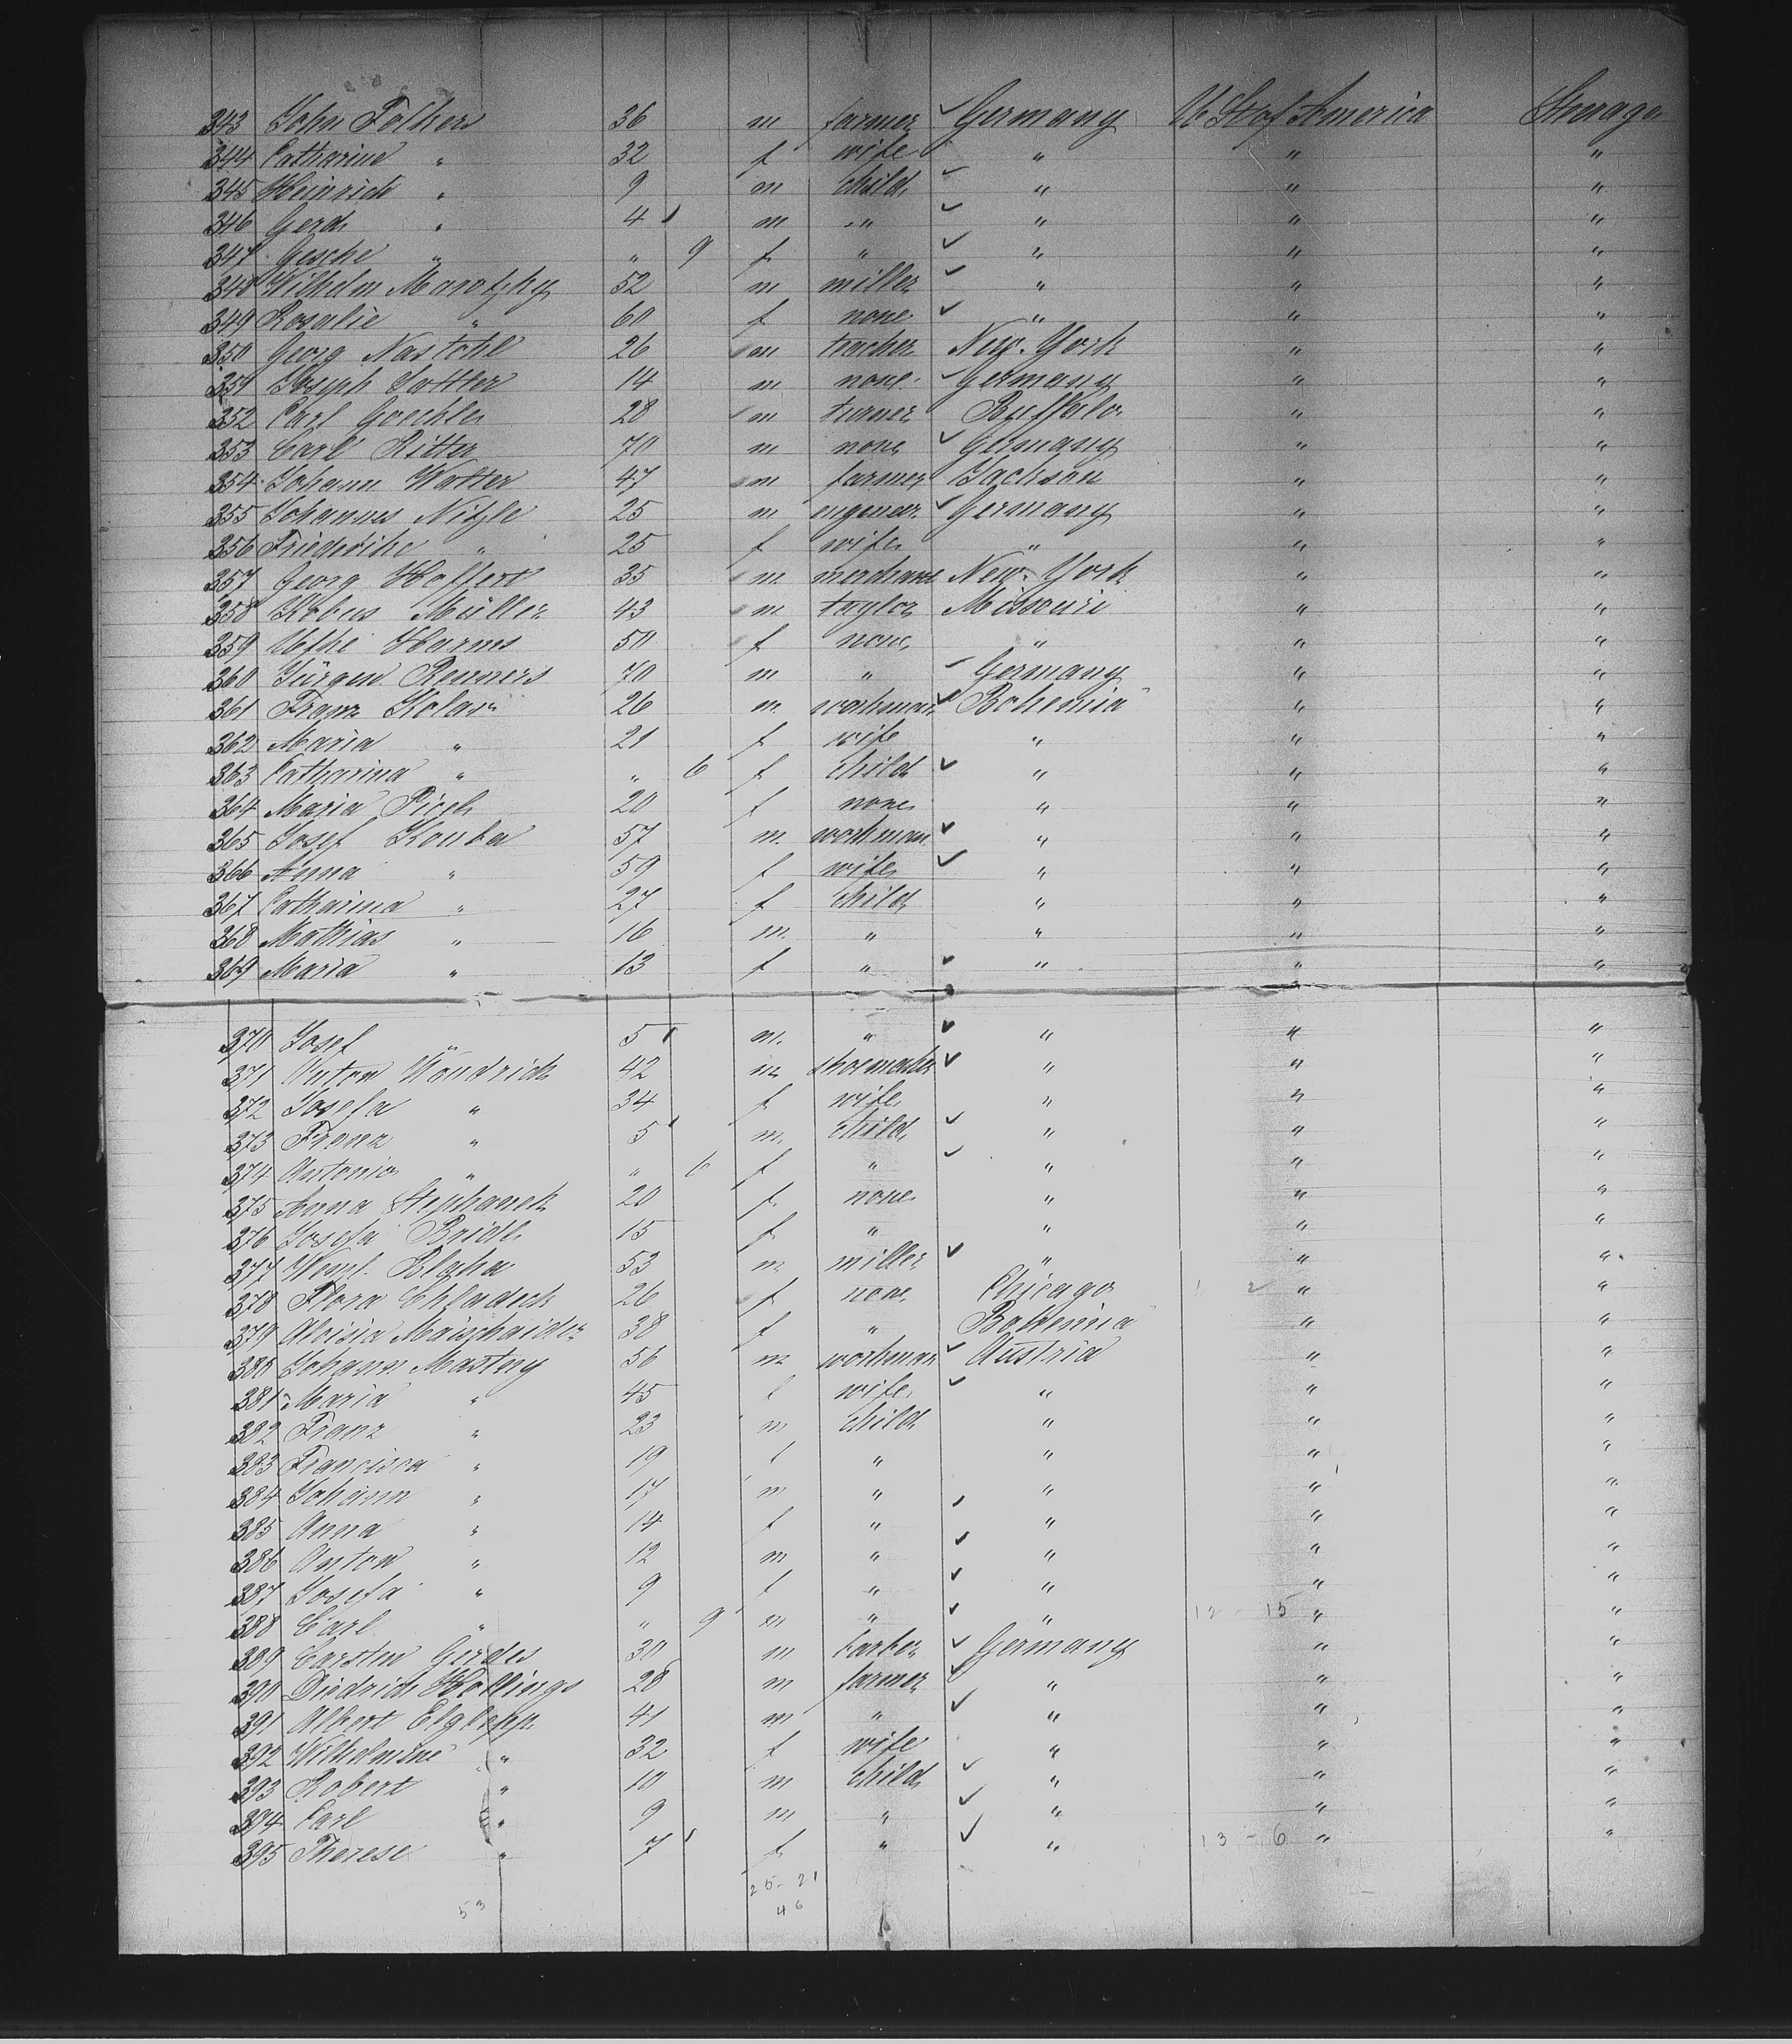 343 John Folkers 36 m farmer ✓ Germany U. St of America Steerage
344 Catharine " 32 f wife " " "
345 Heinrich " 9 m child ✓ " " "
346 Gerd " 4 m " ✓ " " "
347 Gesche " " 9 f " ✓ " " "
348 Wilhelm Marotzky 52 m miller ✓ " " "
349 Rosalie " 60 f none ✓ " " "
350 Georg Nastohl 26 m teacher New-York " "
351 Joseph Sottler 14 m none ✓ Germany " "
352 Carl Goechler 28 m turner Buffalo " "
353 Carl Ritter 70 m none ✓ Germany " "
354 Johann Watter 47 m farmer Jackson " "
355 Johannes Nitzle 25 m engineer ✓ Germany " "
356 Friederike " 25 f wife " " "
357 Georg Hoffert 35 m merchant New-York " "
358 Kobus Müller 43 m taylor Missouri " "
359 Harms 50 f none " " "
360 Jürgen Remmers 70 m " ✓ Germany " "
361 Franz Kolar 26 m workman ✓ Bohemia " "
362 Maria " 21 f wife " " "
363 Catharina " " 6 f child ✓ " " "
364 Maria 20 f none " " "
365 Josef Kouba 57 m. workman ✓ " " "
366 Anna " 59 f wife ✓ " " "
367 Catharina " 27 f child " " "
368 Mathias " 16 m. " " " "
369 Maria " 13 f " ✓ " " "
370 Josef " 5 m. " ✓ " " "
371 Anton Kondrich 42 m shoemaker ✓ " " "
372 Josefa " 34 f wife " " "
373 Franz " 5 m. child ✓ " " "
374 Antonia " " 6 f " ✓ " " "
375 Anna Stephanek 20 f. none " " "
376 Josefa Bridl 15 f " " " "
377 Wenzl. Blaha 53 m miller ✓ " " "
378 Flora Chladeck 26 f none Chicago 1 2 " "
379 Aloisia 38 f " Bohemia " "
380 Johann Mastny 56 m workman ✓ Austria " "
381 Maria " 45 f wife ✓ " " "
382 Franz " 23 m child " " "
383 Francisca " 19 f " " " "
384 Johann " 17 m " " " "
385 Anna " 14 f " ✓ " " "
386 Anton " 12 m " ✓ " " "
387 Josefa " 9 f " ✓ " " "
388 Carl " " 9 m " ✓ " 12 - 15 " "
389 Carsten Gerdes 30 m barber ✓ Germany " "
390 Diedrich Hollings 28 m farmer ✓ " " "
391 Albert 41 m " ✓ " " "
392 Wilhelmine " 32 f wife " " "
393 Robert " 10 m child ✓ " " "
394 Carl " 9 m " ✓ " " "
395 Therese " 7 f " ✓ " 13 - 6 " "
25 - 21
53 46